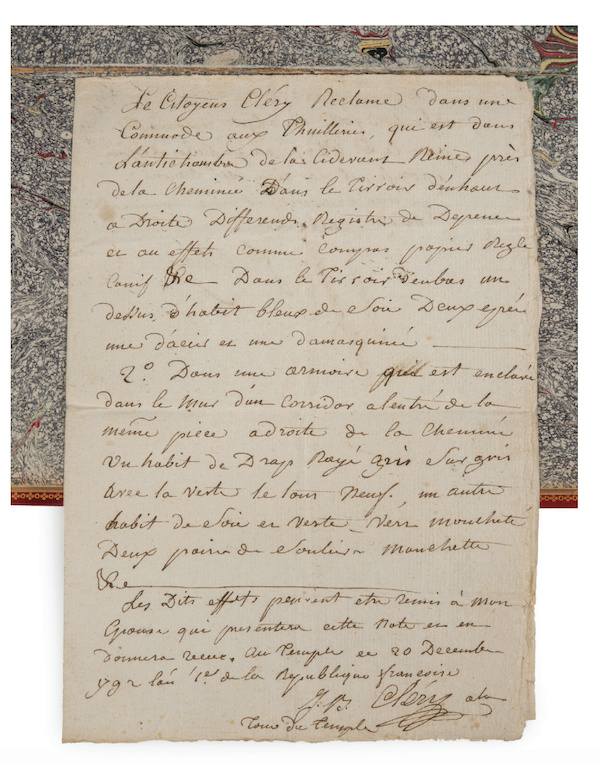 Le Citoyens Cléry Réclame dans une
Commode aux Thuilleries, qui est dans
L'antichambre de la Cidevant Reine près
de la Cheminée Dans le Tirroir d'enhaut
a Droite Differends Registre de Depence
et au effets comme Compas papier Regle
Canif &e Dans le Tirroir d'enbas un
dessus d'habit bleux de Soie Deux epée
une d'acier et une damasquiné
2.o Dans une armoire qui est enclavé
dans le Mur d'un Corridor alentré de la
même piece a droite de la Cheminé
un habit de Drap Rayé gris Sur gris
avec la veste le tous Neuf. un autre
habit de Soie et veste Vert Mouchété
Deux paire de Soulier Mouchette
&e
Les Dits effets peuvent etre remis à Mon
Epouse qui presentera cette Note et en
donnera recue. Au Temple ce 20 Decembre
1792 l'an 1er de la Republique francoise
Cléry
Tour du Temple